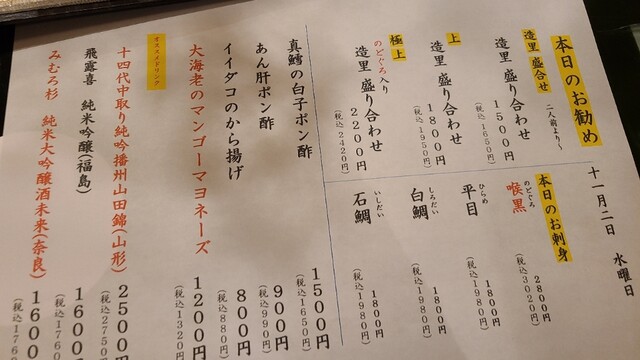 十一月二日　水曜日
本日のお勧め
造里 盛合せ　二人前より〜
造里 盛り合わせ
1500円
(税込1650円)
上
造里 盛り合わせ
1800円
(税込1950円)
極上
のどぐろ入り
造里 盛り合わせ
2200円
(税込2420円)
本日のお刺身
のどぐろ
喉黒
2800円
(税込3020円)
ひらめ
平目
1800円
(税込1980円)
しろだい
白鯛
1800円
(税込1980円)
いしだい
石鯛
1800円
(税込1980円)
真鱈の白子ポン酢
1500円
(税込1650円)
あん肝ポン酢
900円
(税込990円)
イイダコのから揚げ
800円
(税込880円)
大海老のマンゴーマヨネーズ
1200円
(税込1320円)
オススメドリンク
十四代中取り純吟播州山田錦(山形)
2500円
(税込2750円)
飛露喜　純米吟醸(福島)
1600円
(税込1760円)
みむろ杉　純米大吟醸酒未来(奈良)
1600円
(税込1760